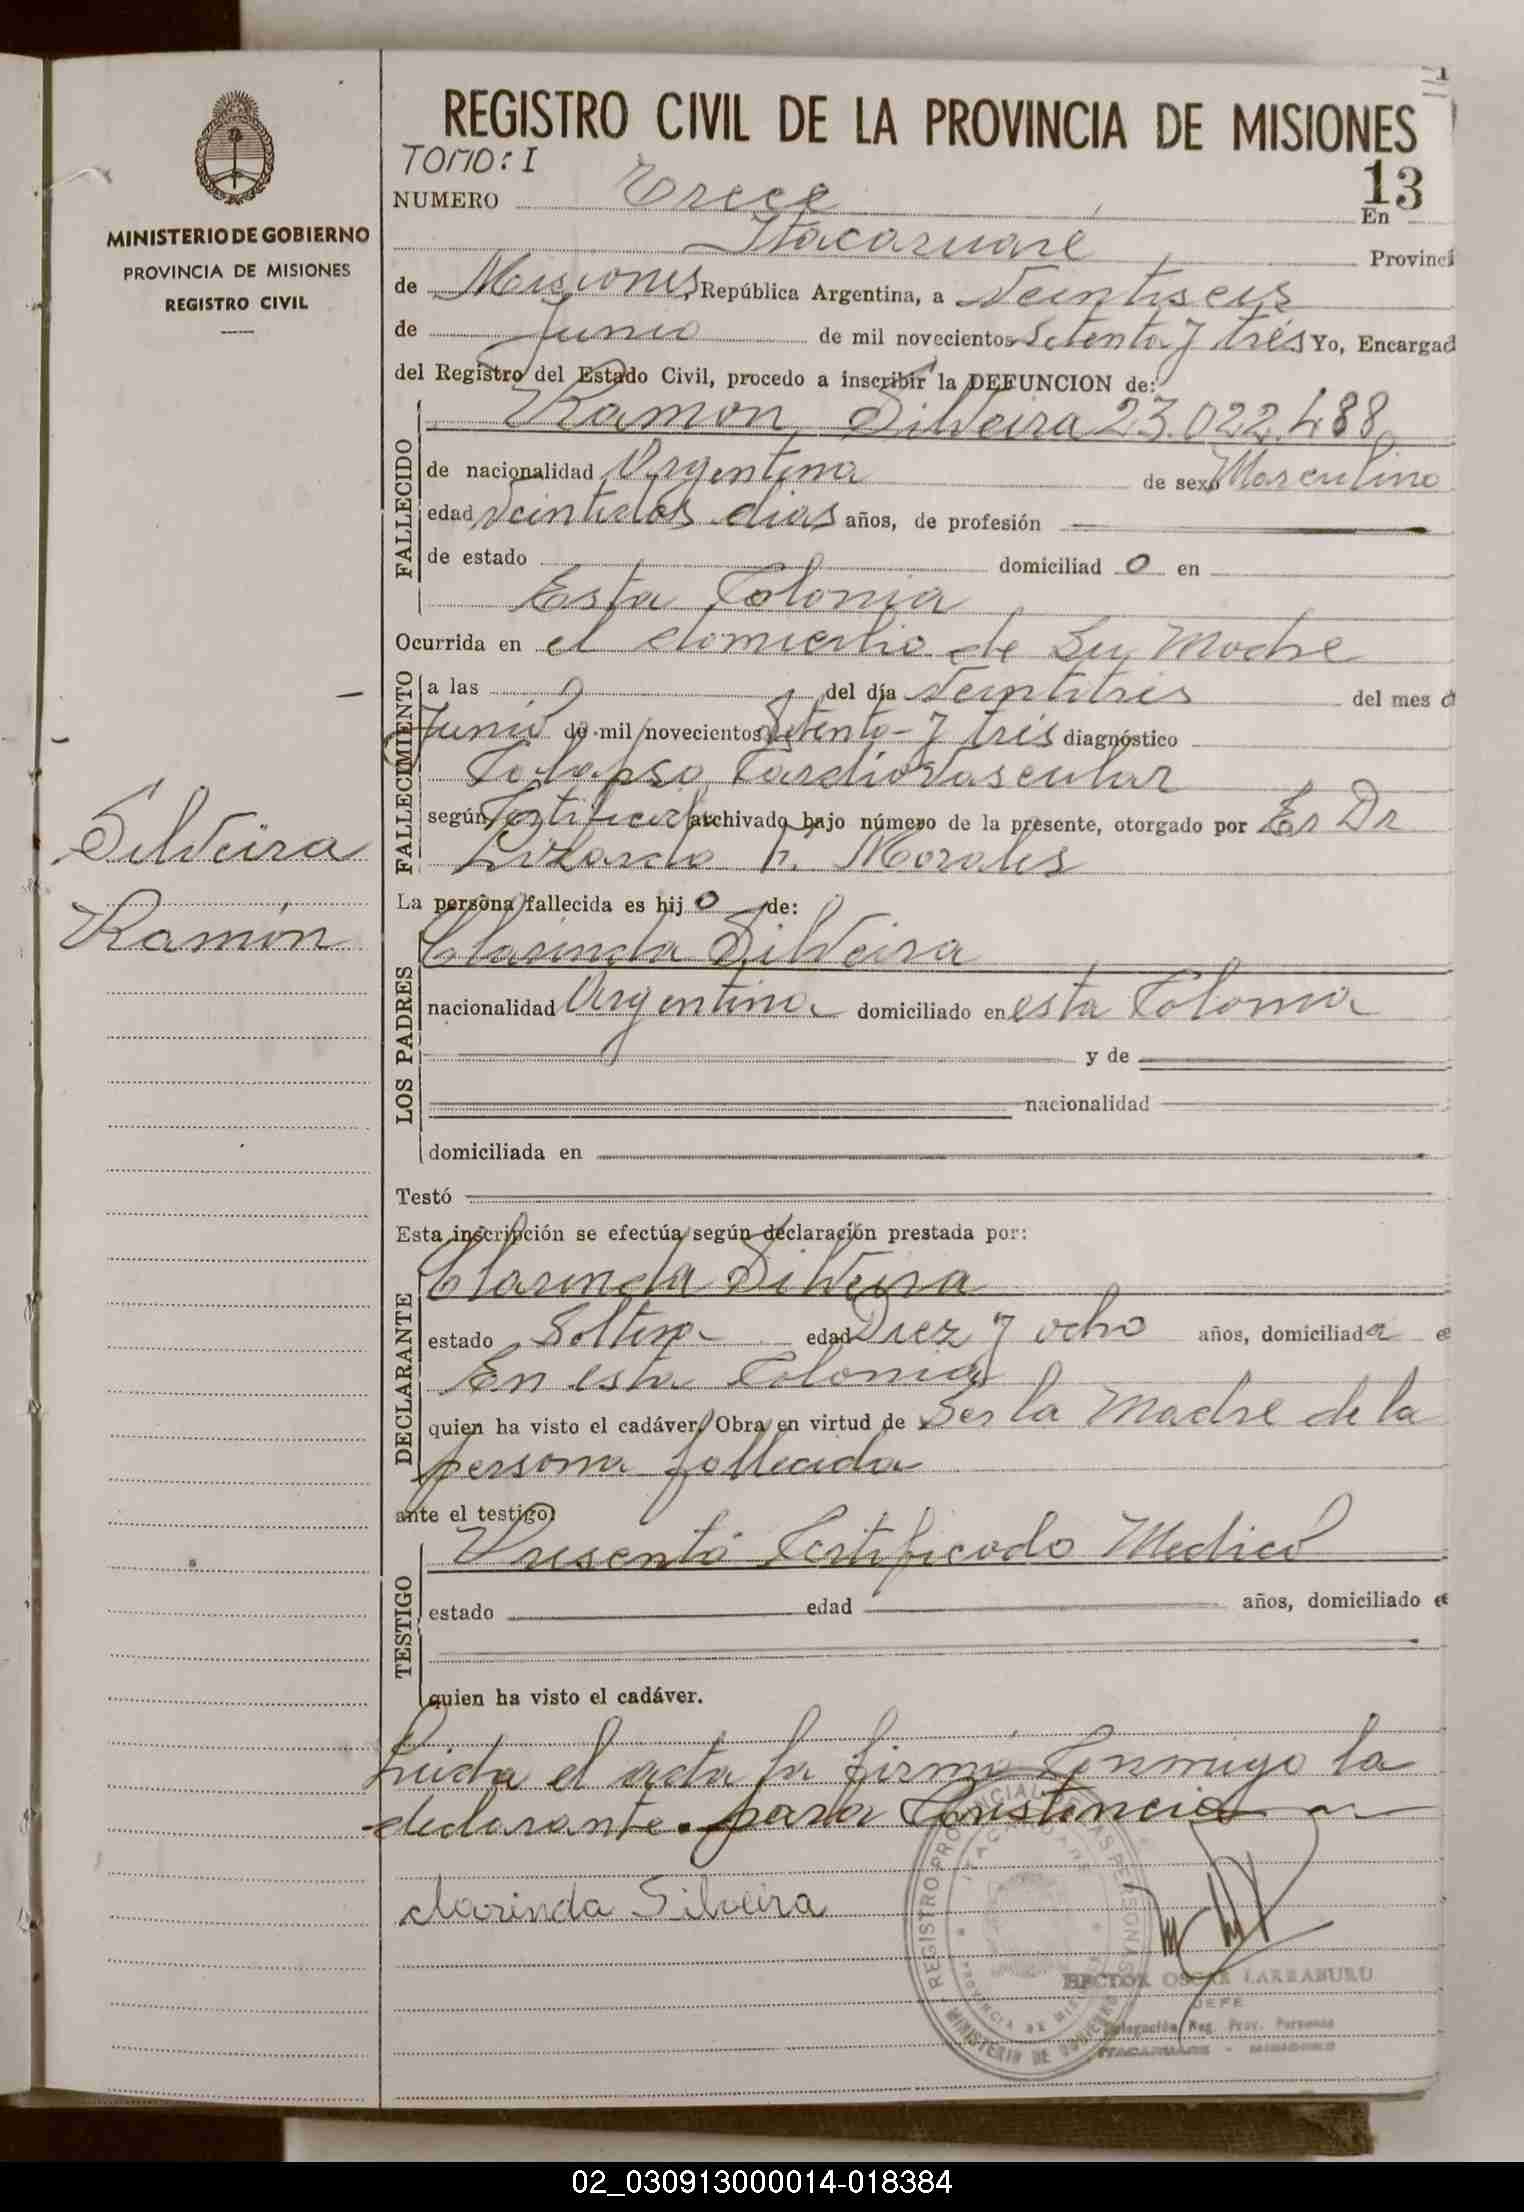 REGISTRO CIVIL DE LA PROVINCIA DE MISIONES
TOMO: I
13
NUMERO Trece En
Itacaruaré Provinci
de Misiones, República Argentina, a Veintiseis
de Junio de mil novecientos Setenta y trés Yo, Encargad
del Registro del Estado Civil, procedo a inscribir la DEFUNCION de:
Ramon Silveira 23.022.488
FALLECIDO
de nacionalidad Argentina de sexo Masculino
edad Veintidos dias años, de profesión
de estado domiciliad o en
Esta Colonia
Ocurrida en el domicilio de Su Madre
FALLECIMIENTO
a las del día Veintitres del mes d
Junio de mil novecientos Setenta y trés diagnóstico
Colapso Cardiovascular
según Certificado archivado bajo número de la presente, otorgado por El Dr
Lizardo R. Morales
La persona fallecida es hij o de:
LOS PADRES
Clarinda Silveira
nacionalidad Argentina domiciliado en esta Colonia
y de
nacionalidad
domiciliada en
Testó
Esta inscripción se efectúa según declaración prestada por:
DECLARANTE
Clarinda Silveira
estado Soltera edad Diez y ocho años, domiciliada e
En esta Colonia
quien ha visto el cadáver. Obra en virtud de Ser la Madre de la
persona fallecida
ante el testigo:
TESTIGO
Presentó Certificado Medico
estado edad años, domiciliado e
quien ha visto el cadáver.
Leida el acta la firmó Conmigo la
declarante. para Constancia
Clarinda Silveira
REGISTRO PROVINCIAL DE LAS PERSONAS
ITACARUARE
PROVINCIA DE MISIONES
MINISTERIO DE GOBIERNO
HECTOR OSCAR LARRABURU
JEFE
Delegación Reg. Prov. Personas
ITACARUARE - MISIONES
MINISTERIO DE GOBIERNO
PROVINCIA DE MISIONES
REGISTRO CIVIL
Silveira
Ramón
02_030913000014-018384